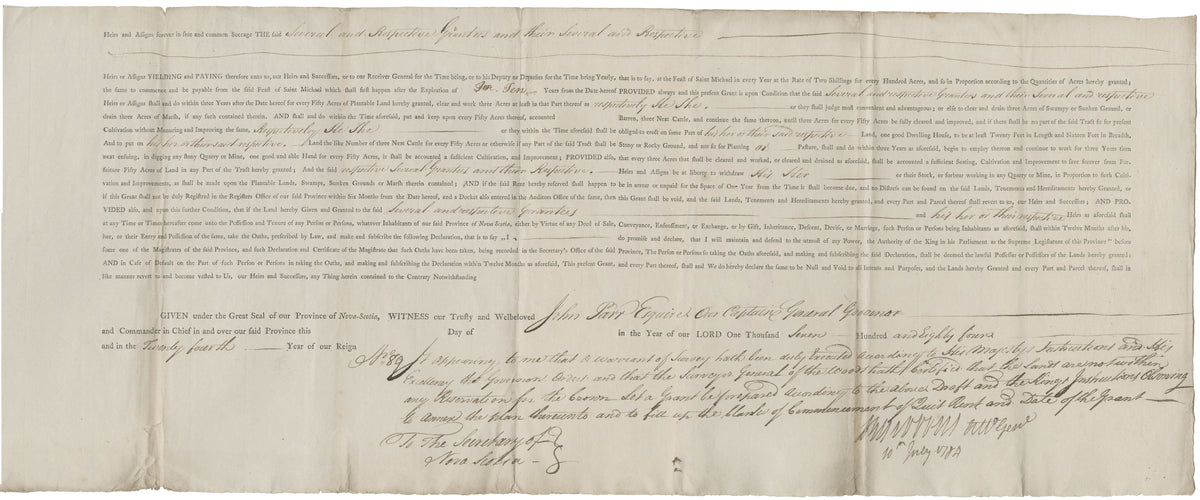 Heirs and Assigns forever in free and common Soccage THE said Several and Respective Grantees and their Several and Respective
Heirs or Assigns YIELDING and PAYING therefore unto us, our Heirs and Successors, or to our Receiver General for the Time being, or to his Deputy or Deputies for the Time being Yearly, that is to say, at the Feast of Saint Michael in every Year at the Rate of Two Shillings for every Hundred Acres, and so in Proportion according to the Quantities of Acres hereby granted;
the same to commence and be payable from the said Feast of Saint Michael which shall first happen after the Expiration of Ten Years from the Date hereof PROVIDED always and this present Grant is upon Condition that the said Several and respective Grantees and their Several and respective
Heirs or Assigns shall and do within three Years after the Date hereof for every Fifty Acres of Plantable Land hereby granted, clear and work three Acres at least in that Part thereof as respectively He She or they shall judge most convenient and advantageous; or else to clear and drain three Acres of Swampy or Sunken Ground, or
drain three Acres of Marsh, if any such contained therein. AND shall and do within the Time aforesaid, put and keep upon every Fifty Acres thereof, accounted Barren, three Neat Cattle, and continue the same thereon, until three Acres for every Fifty Acres be fully cleared and improved, and if there shall be no part of the said Tract fit for present
Cultivation without Manuring and Improving the same, Respectively He She or they within the Time aforesaid shall be obliged to erect on some Part of his her or their said respective Land, one good Dwelling House, to be at least Twenty Feet in Length and Sixteen Feet in Breadth,
And to put on his her or their said respective Land the like Number of three Neat Cattle for every Fifty Acres or otherwise if any Part of the said Tract shall be Stony or Rocky Ground, and not fit for Planting or Pasture, shall and do within three Years as aforesaid, begin to employ thereon and continue to work for three Years then
next ensuing, in digging any Stony Quarry or Mine, one good and able Hand for every Fifty Acres, it shall be accounted a sufficient Cultivation, and Improvement; PROVIDED also, that every three Acres that shall be cleared and worked, or cleared and drained as aforesaid, shall be accounted a sufficient Seating, Cultivation and Improvement to save forever from For-
feiture Fifty Acres of Land in any Part of the Tract hereby granted; And the said respective Several Grantees and their Respective Heirs and Assigns be at liberty to withdraw His Her or their Stock, or forbear working in any Quarry or Mine, in Proportion to such Culti-
vation and Improvements, as shall be made upon the Plantable Lands, Swamps, Sunken Grounds or Marsh therein contained; AND if the said Rent hereby reserved shall happen to be in arrear or unpaid for the Space of One Year from the Time it shall become due, and no Distress can be found on the said Lands, Tenements and Hereditaments hereby granted, or
if this Grant shall not be duly Registred in the Registers Office of our said Province within Six Months from the Date hereof, and a Docket also entered in the Auditors Office of the same, then this Grant shall be void, and the said Lands, Tenements and Hereditaments hereby granted, and every Part thereof shall revert to us, our Heirs and Successors; AND PRO-
VIDED also, and upon this further Condition, that if the Land hereby Given and Granted to the said Several and respective Grantees and his her or their respective Heirs as aforesaid shall
at any Time or Times hereafter come unto the Possession and Tenure of any Person or Persons, whatever Inhabitants of our said Province of Nova Scotia, either by Virtue of any Deed of Sale, Conveyance, Enfeoffment, or Exchange, or by Gift, Inheritance, Descent, Devise, or Marriage, such Person or Persons being Inhabitants as aforesaid, shall within Twelve Months after his,
her, or their Entry and Possession of the same, take the Oaths, prescribed by Law, and make and subscribe the following Declaration, that is to say, "I do promise and declare, that I will maintain and defend to the utmost of my Power, the Authority of the King in his Parliament as the Supreme Legislature of this Province" before
some one of the Magistrates of the said Province, and such Declaration and Certificate of the Magistrate that such Oaths have been taken, being recorded in the Secretary's Office of the said Province, The Person or Persons so taking the Oaths aforesaid, and making and subscribing the said Declaration, shall be deemed the lawful Possessor or Possessors of the Lands hereby granted;
AND in Case of Default on the Part of such Person or Persons in taking the Oaths, and making and subscribing the Declaration within Twelve Months as aforesaid, This present Grant, and every Part thereof, shall and We do hereby declare the same to be Null and Void to all Intents and Purposes, and the Lands hereby Granted and every Part and Parcel thereof, shall in
like manner revert to and become vested to Us, our Heirs and Successors, any Thing herein contained to the Contrary Notwithstanding
GIVEN under the Great Seal of our Province of Nova-Scotia, WITNESS our Trusty and Welbeloved John Parr Esquire Our Captain General Governor
and Commander in Chief in and over our said Province this Day of in the Year of our LORD One Thousand Seven Hundred and Eighty four
and in the Twenty fourth Year of our Reign
No. 89 It appearing to me that a warrant of Survey hath been duly Executed according to His Majestys Instructions and His
Excellency the Governors Order and that the Surveyor General of the Woods hath Certified that the Lands are not within
any Reservation for the Crown Let a Grant be prepared according to the above Draft and the Kings Instructions Observing
to Annex the plan thereunto and to fill up the blank of Commencement of Quit Rent and Date of the Grant
To the Secretary of
Nova Scotia
Att'y Gen'l
10th July 1784